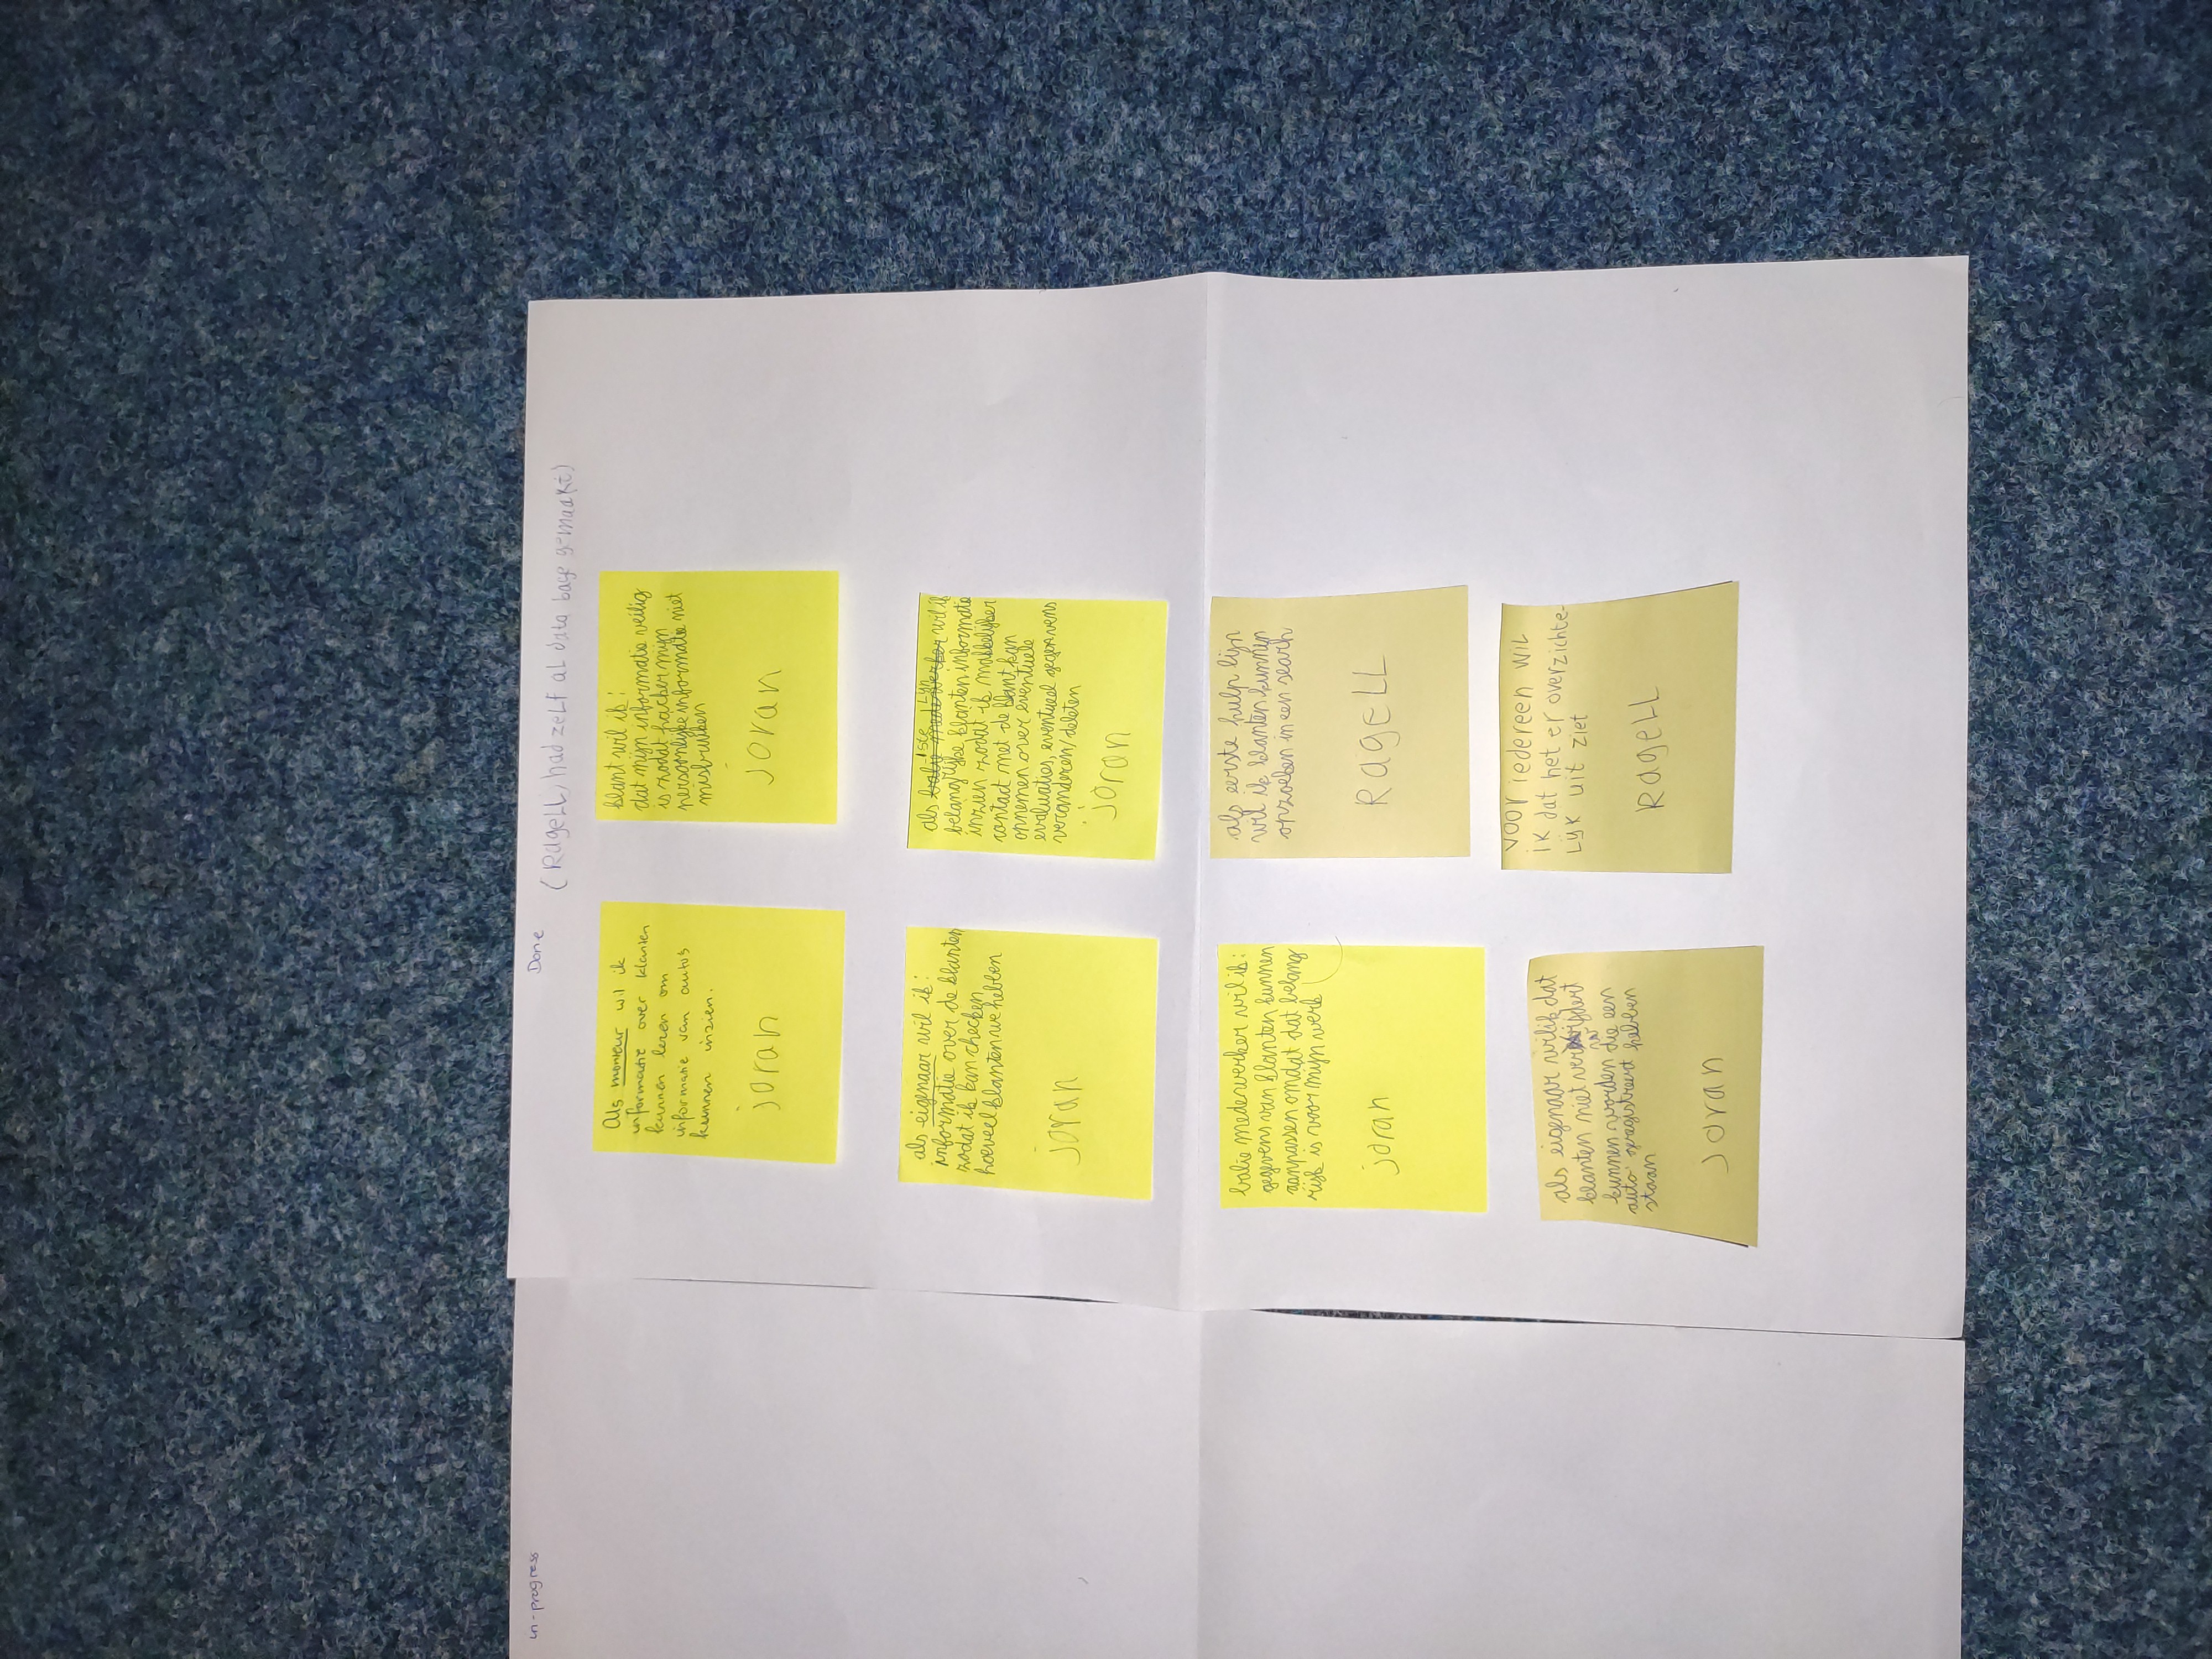 in-progress
Done
(RageLL, had zelf al data base gemaakt)
Als monteur wil ik
informatie over klanten
kunnen lezen om
informatie van auto's
kunnen inzien.
joran
klant wil ik:
dat mijn informatie veilig
is zodat hacker mijn
persoonlijke informatie niet
misbruiken
joran
als eigenaar wil ik:
informatie over de klanten
zodat ik kan checken
hoeveel klanten we hebben
joran
1ste Lijn
als balie medewerker wil ik
belangrijke klanten informatie
inzien zodat ik makkelijker
contact met de klant kan
opnemen over eventuele
evaluaties, eventueel gegevens
veranderen/deleten
joran
balie medewerker wil ik:
gegevens van klanten kunnen
aanpassen omdat dat belang
rijk is voor mijn werk
joran
als eerste hulp lijn
wil ik klanten kunnen
opzoeken in een search
RageLL
als eigenaar wil ik dat
klanten niet verwijdert
kunnen worden die een
auto geregistreerd hebben
staan
joran
voor iedereen wil
ik dat het er overzichte-
lijk uit ziet
RageLL